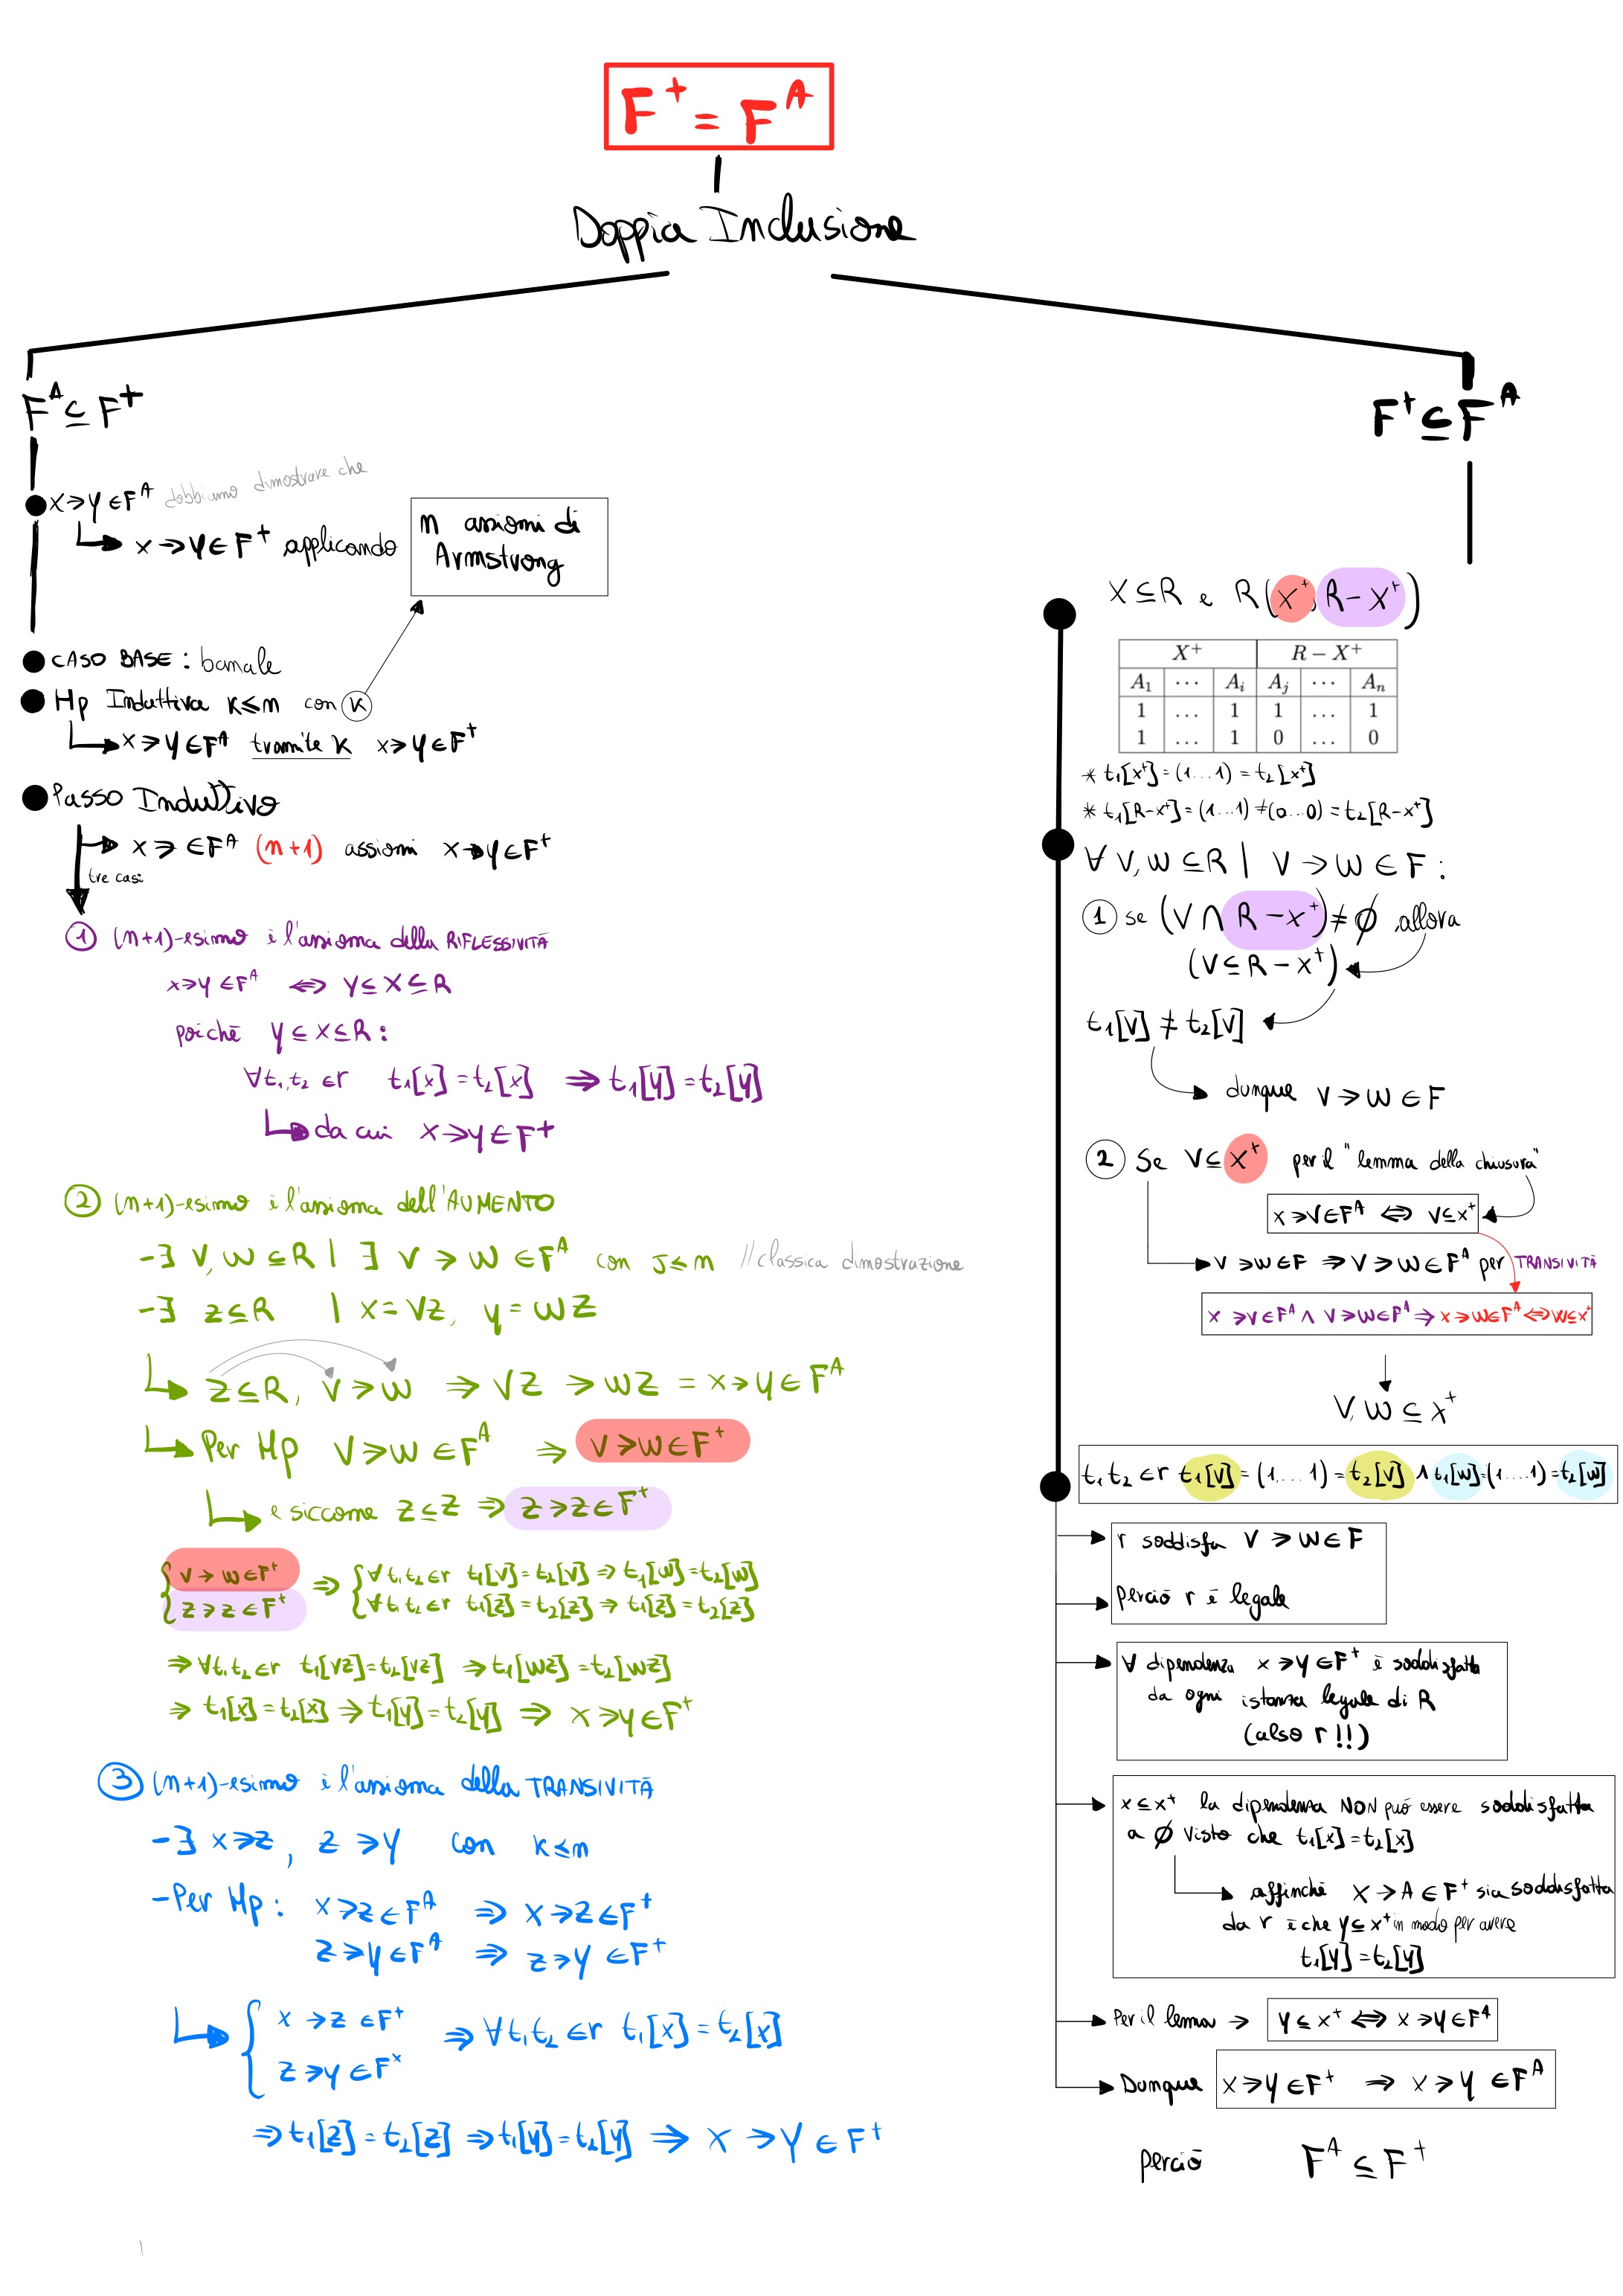 F⁺ = Fᴬ
Doppia Inclusione
Fᴬ ⊆ F⁺
X→Y ∈ Fᴬ dobbiamo dimostrare che
X→Y ∈ F⁺ applicando
n assiomi di
Armstrong
CASO BASE : banale
Hp Induttiva K≤n con K
X→Y ∈ Fᴬ tramite K X→Y ∈ F⁺
Passo Induttivo
X→ ∈ Fᴬ (n+1) assiomi X→Y ∈ F⁺
tre casi
① (n+1)-esimo è l'assioma della RIFLESSIVITÀ
X→Y ∈ Fᴬ ⇔ Y ⊆ X ⊆ R
poiché Y ⊆ X ⊆ R :
∀t₁,t₂ ∈ r t₁[X] = t₂[X] ⇒ t₁[Y] = t₂[Y]
da cui X→Y ∈ F⁺
② (n+1)-esimo è l'assioma dell'AUMENTO
-∃ V, W ⊆ R | ∃ V → W ∈ Fᴬ con J≤n //classica dimostrazione
-∃ Z ⊆ R | X = VZ, Y = WZ
Z ⊆ R, V → W ⇒ VZ → WZ = X→Y ∈ Fᴬ
Per Hp V→W ∈ Fᴬ ⇒ V→W ∈ F⁺
e siccome Z ⊆ Z ⇒ Z→Z ∈ F⁺
{ V→W ∈ F⁺ ⇒ { ∀t₁t₂ ∈ r t₁[V] = t₂[V] ⇒ t₁[W] = t₂[W]
{ Z→Z ∈ F⁺ { ∀t₁t₂ ∈ r t₁[Z] = t₂[Z] ⇒ t₁[Z] = t₂[Z]
⇒ ∀t₁t₂ ∈ r t₁[VZ] = t₂[VZ] ⇒ t₁[WZ] = t₂[WZ]
⇒ t₁[X] = t₂[X] ⇒ t₁[Y] = t₂[Y] ⇒ X→Y ∈ F⁺
③ (n+1)-esimo è l'assioma della TRANSIVITÀ
-∃ X→Z, Z→Y con K≤n
-Per Hp : X→Z ∈ Fᴬ ⇒ X→Z ∈ F⁺
Z→Y ∈ Fᴬ ⇒ Z→Y ∈ F⁺
{ X→Z ∈ F⁺ ⇒ ∀t₁t₂ ∈ r t₁[X] = t₂[X]
{ Z→Y ∈ Fˣ
⇒ t₁[Z] = t₂[Z] ⇒ t₁[Y] = t₂[Y] ⇒ X→Y ∈ F⁺
F⁺ ⊆ Fᴬ
X ⊆ R e R(X⁺, R−X⁺)
X⁺ R − X⁺
A₁ ⋯ Aᵢ Aⱼ ⋯ Aₙ
1 … 1 1 … 1
1 … 1 0 … 0
* t₁[X⁺] = (1...1) = t₂[X⁺]
* t₁[R−X⁺] = (1...1) ≠ (0...0) = t₂[R−X⁺]
∀ V, W ⊆ R | V → W ∈ F :
① se (V ∩ R − X⁺) ≠ ∅ allora
(V ⊆ R − X⁺)
t₁[V] ≠ t₂[V]
dunque V → W ∈ F
② Se V ⊆ X⁺ per il "lemma della chiusura"
X→V ∈ Fᴬ ⇔ V ⊆ X⁺
V→W ∈ F ⇒ V→W ∈ Fᴬ per TRANSIVITÀ
X→V ∈ Fᴬ ∧ V→W ∈ Fᴬ ⇒ X→W ∈ Fᴬ ⇔ W ⊆ X⁺
V, W ⊆ X⁺
t₁ t₂ ∈ r t₁[V] = (1,...1) = t₂[V] ∧ t₁[W] = (1....1) = t₂[W]
r soddisfa V → W ∈ F
perciò r è legale
∀ dipendenza X→Y ∈ F⁺ è soddisfatta
da ogni istanza legale di R
(also r !!)
X ⊆ X⁺ la dipendenza NON può essere soddisfatta
a ∅ visto che t₁[X] = t₂[X]
affinché X → A ∈ F⁺ sia soddisfatta
da r è che Y ⊆ X⁺ in modo per avere
t₁[Y] = t₂[Y]
Per il lemma → Y ⊆ X⁺ ⇔ X→Y ∈ Fᴬ
Dunque X→Y ∈ F⁺ ⇒ X→Y ∈ Fᴬ
perciò Fᴬ ⊆ F⁺